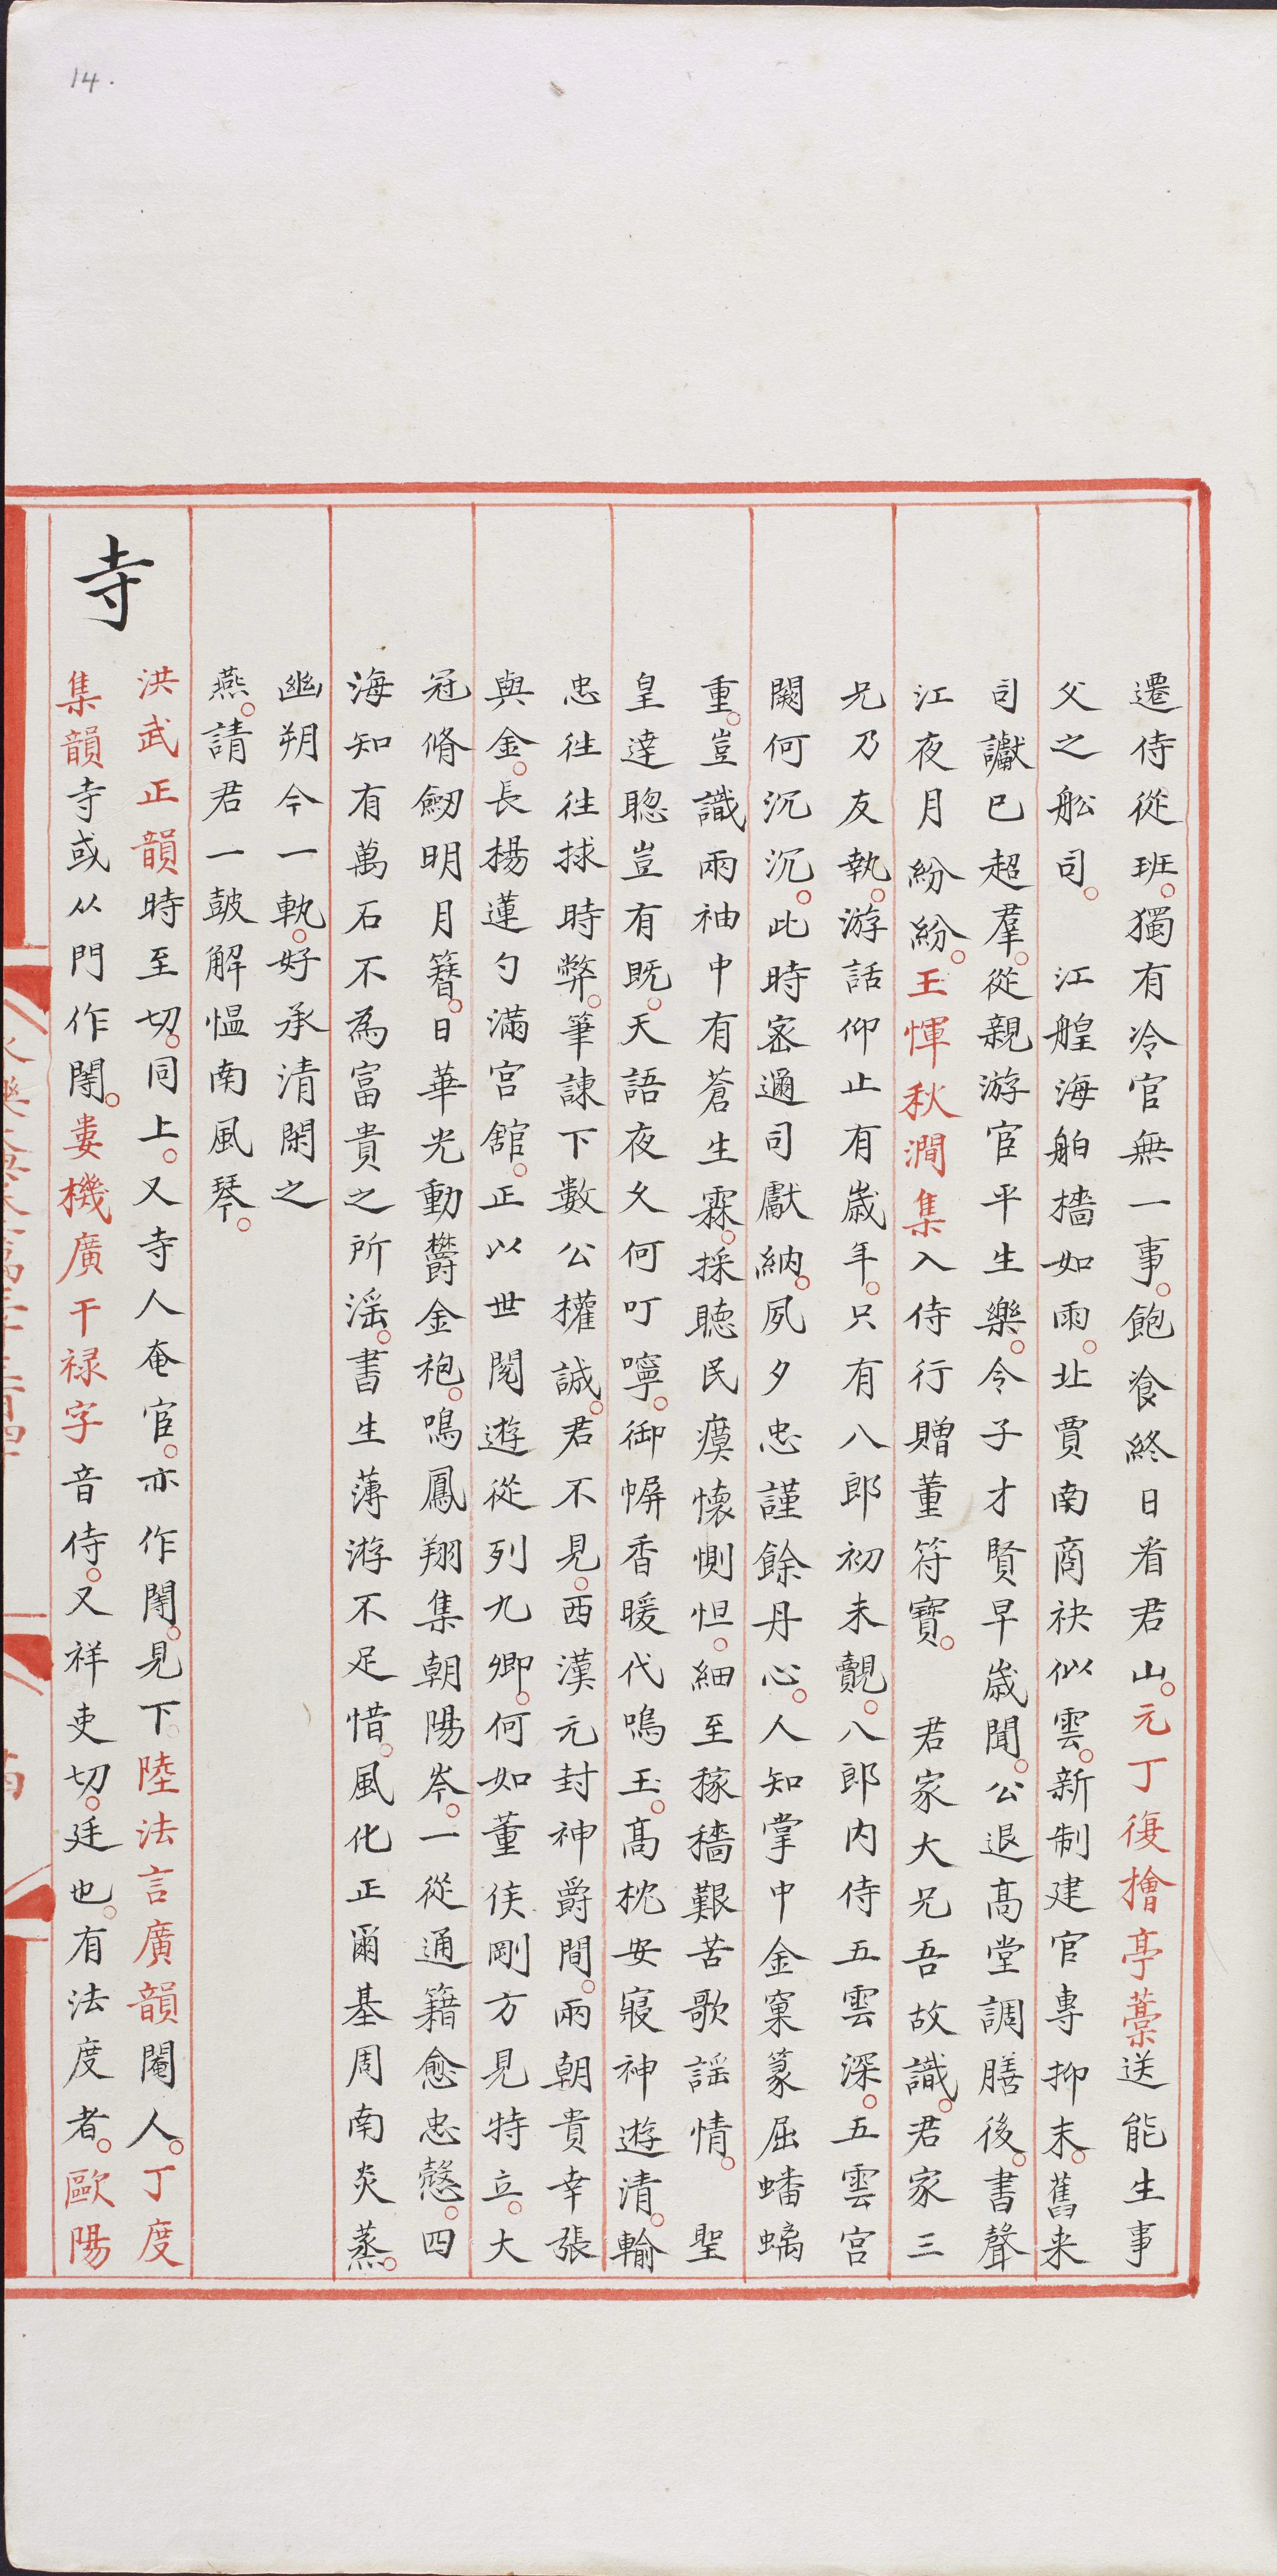 14.
遷侍從班獨有冷官無一事飽飡終日看君山元丁復檜亭藁送能生事
父之舩司 江艎海舶檣如雨北賈南商袂似雲新制建官專抑末舊来
司讞已超羣從親游宦平生樂令子才賢早歳聞公退髙堂調膳後書聲
江夜月紛紛王惲秋澗集入侍行贈董符寶 君家大兄吾故識君家三
兄乃友執游話仰止有嵗年只有八郎初未覿八郎内侍五雲深五雲宮
闕何沉沉此時宻邇司獻納夙夕忠謹餘丹心人知掌中金窠篆屈蟠螭
重豈識兩袖中有蒼生霖採聽民瘼懷惻怛細至稼穡艱苦歌謡情 聖
皇達聦豈有既天語夜久何叮嚀御幈香暖代鳴玉髙枕安寢神遊清輸
忠往往捄時弊筆諫下數公權誠君不見西漢元封神爵間兩朝貴幸張
與金長楊蓮勺滿宫舘正以世閥遊從列九卿何如董侯剛方見特立大
冠脩劒明月簮日華光動欝金袍鳴鳳翔集朝陽岑一從通籍愈忠慤四
海知有萬石不為富貴之所滛書生薄游不足惜風化正爾基周南炎蒸
幽朔今一執好承清閑之
燕請君一鼓解愠南風琴
寺
洪武正韻時至切同上又寺人奄宦亦作閽見下陸法言廣韻閹人丁度
集韻寺或从門作閽婁機廣干禄字音侍又祥吏切廷也有法度者歐陽